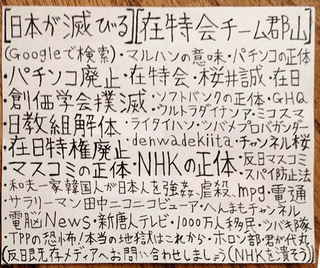 [日本が滅びる][在特会チーム郡山]
(Googleで検索)・マルハンの意味・パチンコの正体
・パチンコ廃止・在特会・桜井誠・在日
・創価学会撲滅・ソフトバンクの正体・GHQ
・日教組解体・ウルトラダイナソア・ミコスマ
・ライダイハン・ツバメプロパガンダー
・在日特権廃止・denwadekiita・チャンネル桜
・マスコミの正体・NHKの正体・反日マスゴミ
・スパイ防止法
・和夫一家韓国人が日本人を強姦、虐殺.mpg・電通
・サラリーマン田中ニコニコビューア・へんまもチャンネル
・電脳News・新唐人テレビ・1000万人移民・ツバキ隊
・TPPの恐怖!本当の地獄はこれから・ホロン部・君が代丸
(反日既存メディアへお問い合わせしましょう)(NHKも潰そう)